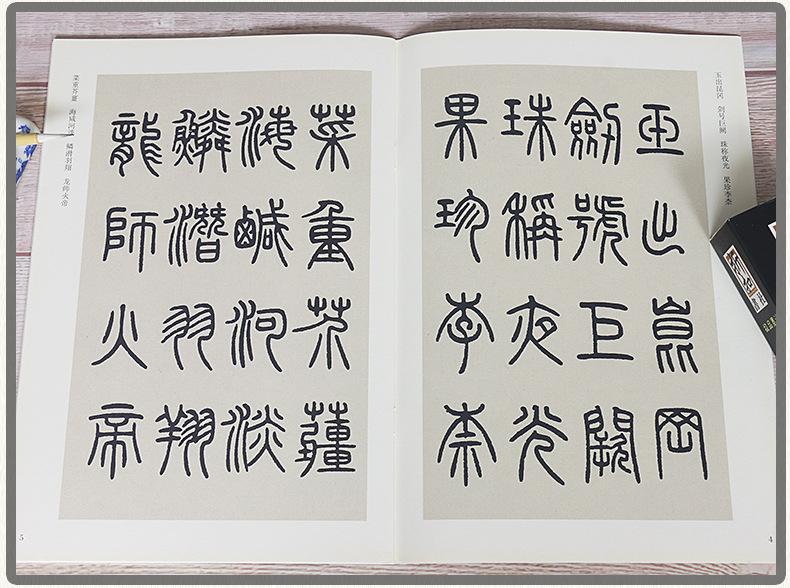 玉出昆冈 剑号巨阙 珠称夜光 果珍李柰
玉出崑岡
劍號巨闕
珠稱夜光
果珍李柰
4
菜重芥薑
海鹹河淡
鱗潛羽翔
龍師火帝
菜重芥薑 海咸河 鳞潜羽翔 龙师火帝
5